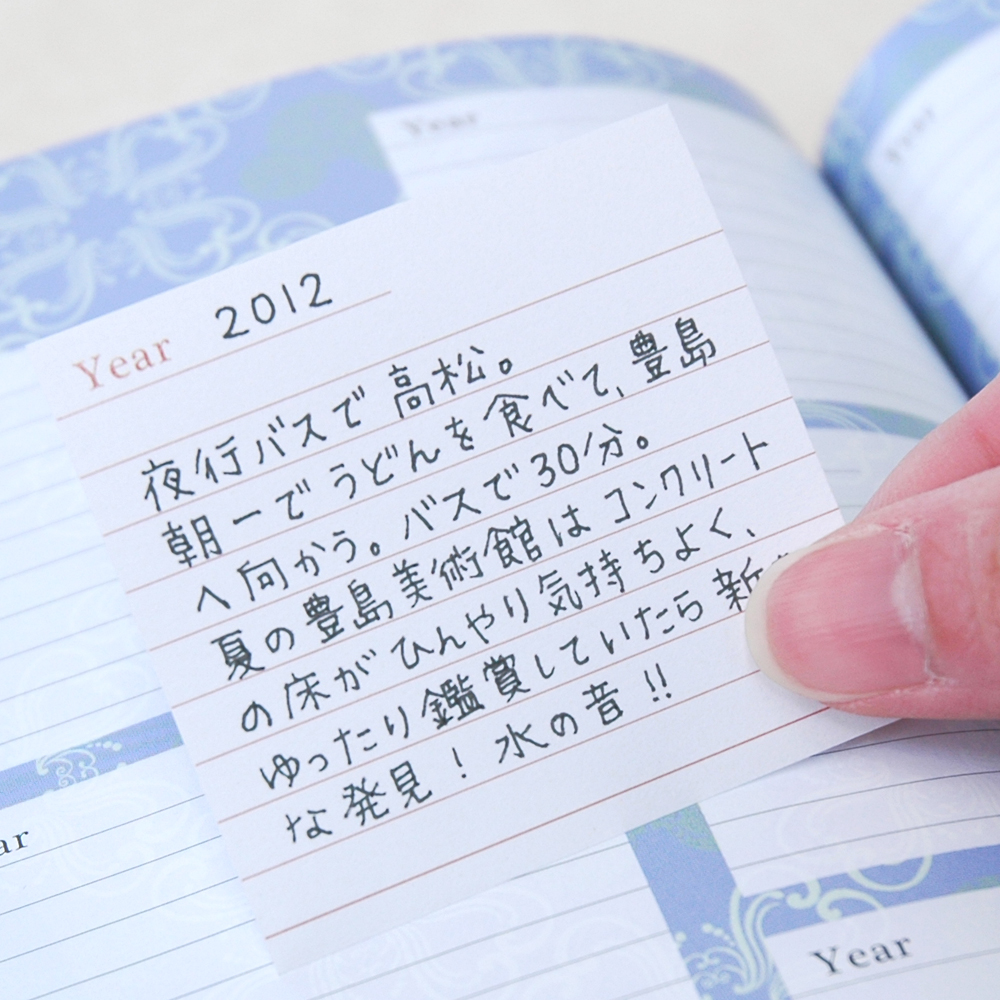 Year
Year
Year 2012
夜行バスで高松。
朝一でうどんを食べて、豊島
へ向かう。バスで30分。
夏の豊島美術館はコンクリート
の床がひんやり気持ちよく、
ゆったり鑑賞していたら新
な発見！水の音!!
ar
Year